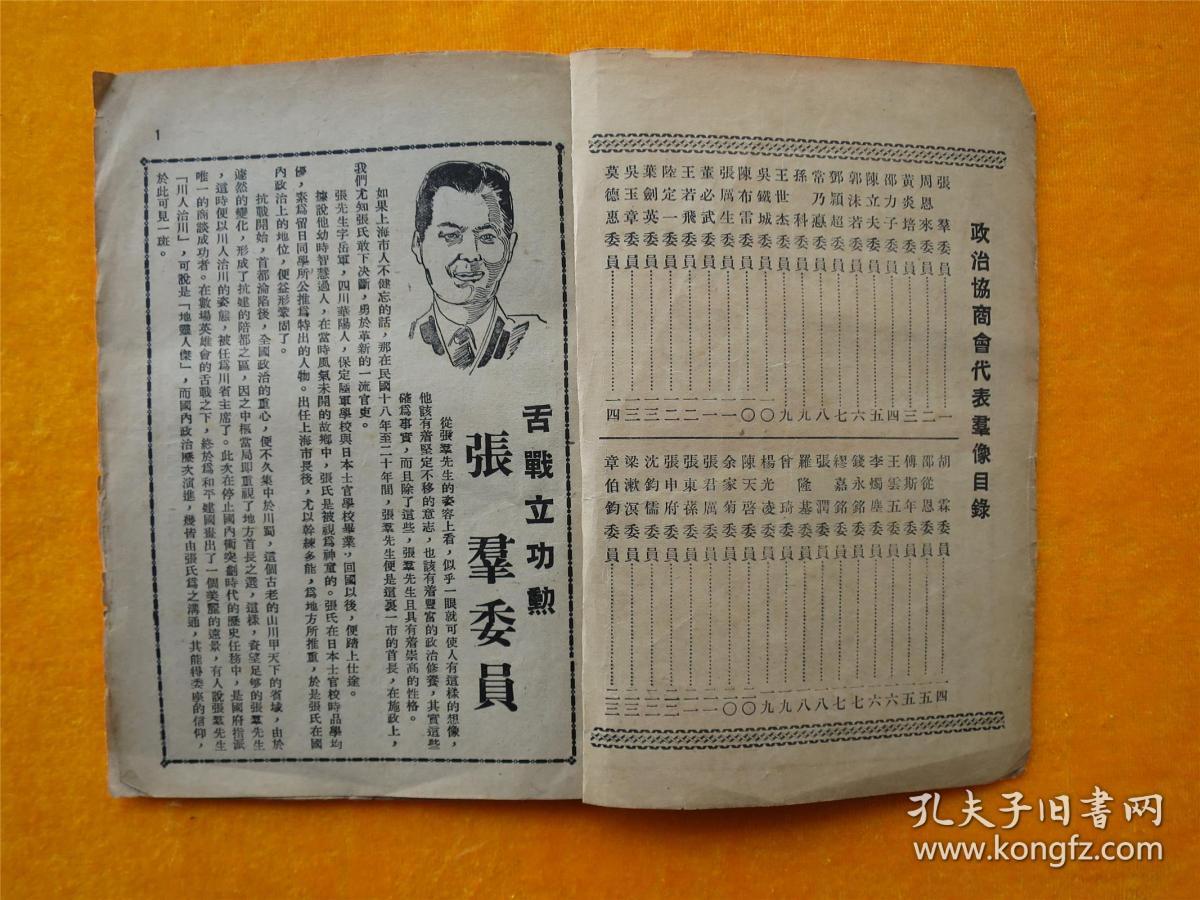 政治協商會代表羣像目錄
張　羣委員……一
周恩來委員……二
黃炎培委員……三
邵力子委員……四
陳立夫委員……五
郭沫若委員……六
鄧穎超委員……七
常乃悳委員……八
孫　科委員……九
王世杰委員……九
吳鐵城委員……一〇
陳布雷委員……一〇
張厲生委員……一一
董必武委員……一一
王若飛委員……一二
陸定一委員……一二
葉劍英委員……一三
吳玉章委員……一三
莫德惠委員……一四
胡　霖委員
邵從恩委員
傅斯年委員
王雲五委員
李燭塵委員
錢永銘委員
繆嘉銘委員
張　瀾委員
羅隆基委員
曾　琦委員
楊光凌委員
陳天啓委員
余家菊委員
張君厲委員
張東蓀委員
張申府委員
沈鈞儒委員
梁漱溟委員
章伯鈞委員
1
舌戰立功勳
張羣委員
從張羣先生的姿容上看，似乎一眼就可使人有這樣的想像，
他該有着堅定不移的意志，也該有着豐富的政治修養，其實這些
確爲事實，而且除了這些，張羣先生且具有着崇高的性格。
如果上海市人不健忘的話，那在民國十八年至二十年間，張羣先生便是這裏一市的首長，在施政上，
我們尤知張氏敢下决斷，勇於革新的一流官吏。
張先生字岳軍，四川華陽人，保定陸軍學校與日本士官學校畢業，回國以後，便踏上仕途。
據說他幼時智慧過人，在當時風氣未開的故鄉中，張氏是被視爲神童的。張氏在日本士官校時品學均
優，素爲留日同學所公推爲特出的人物。出任上海市長後，尤以幹練多能，爲地方所推重，於是張氏在國
內政治上的地位，便益形鞏固了。
抗戰開始，首都淪陷後，全國政治的重心，便不久集中於川蜀，這個古老的山川甲天下的省域，由於
遽然的變化，形成了抗建的陪都之區，因之中樞當局即重視了地方首長之選，這樣，資望足够的張羣先生
，這時便以川人治川的姿態，被任爲川省主席了。此次在停止國內衝突劃時代的歷史任務中，是國府指派
唯一的商談成功者。在數場英雄會的舌戰之下，終於爲和平建國畫出了一個美麗的遠景，有人說張羣先生
「川人治川」，可說是「地靈人傑」，而國內政治歷次演進，幾皆由張氏爲之溝通，其能得委座的信仰，
於此可見一斑。
孔夫子旧书网
www.kongfz.com